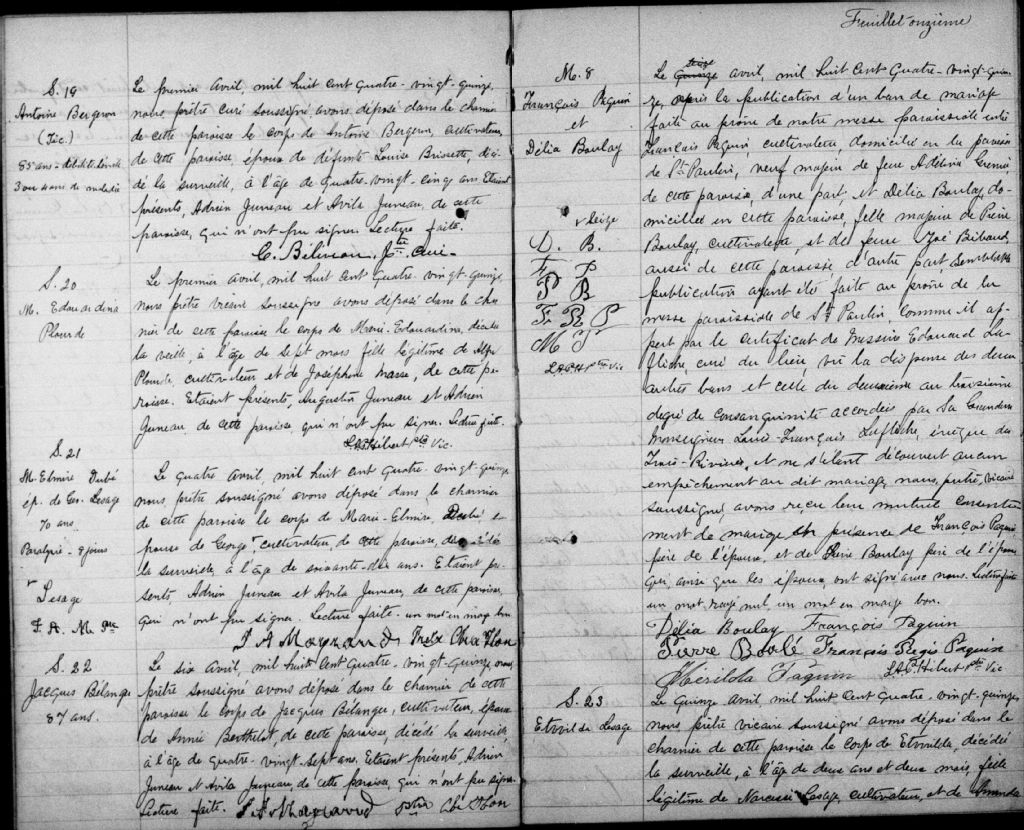 S. 19
Antoine Bergeron
(Féc.)
85 ans - débilité sénile
3 ou 4 ans de maladie
Le premier avril, mil huit cent quatre-vingt-quinze,
nous, prêtre curé soussigné, avons déposé dans le charnier
de cette paroisse le corps de Antoine Bergeron, cultivateur,
de cette paroisse, époux de défunte Louise Brissette, décé-
dé la surveille, à l'âge de quatre-vingt-cinq ans. Etaient
présents, Adrien Juneau et Avila Juneau, de cette
paroisse, qui n'ont pu signer. Lecture faite.
Ptre, Curé
S. 20
M. Edouardina
Plourde
Le premier avril, mil huit cent quatre-vingt-quinze,
nous prêtre vicaire soussigné avons déposé dans le char-
nier de cette paroisse le corps de Marie-Edouardina, décédée
la veille, à l'âge de sept mois, fille légitime de
Plourde, cultivateur et de Joséphine Masse, de cette pa-
roisse. Etaient présents, Augustin Juneau et Adrien
Juneau, de cette paroisse qui n'ont pu signer. Lecture faite.
L.A.P. Hébert Ptre Vic.
S. 21
M. Elmire Dubé
ép. de Geo. Lesage
70 ans
Paralysie - 8 jours
v Lesage
J. A. M. Ptre
Le quatre avril, mil huit cent quatre-vingt-quinze,
nous, prêtre soussigné avons déposé dans le charnier
de cette paroisse le corps de Marie-Elmire, Dubé, é-
pouse de George v cultivateur, de cette paroisse, décédée
la surveille, à l'âge de soixante-dix ans. Etaient pré-
sents, Adrien Juneau et Avila Juneau, de cette paroisse,
qui n'ont pu signer. Lecture faite - un mot en marge bon
J A Mayrand
S. 22
Jacques Bélanger
87 ans.
Le six avril, mil huit cent quatre-vingt-quinze, nous,
prêtre soussigné avons déposé dans le charnier de cette
paroisse le corps de Jacques Bélanger, cultivateur, époux
de Annie Berthelot, de cette paroisse, décédé la surveille,
à l'âge de quatre-vingt-sept ans. Etaient présents, Adrien
Juneau et Avila Juneau de cette paroisse, qui n'ont pu signer.
Lecture faite. J. A. Mayrand
Feuillet onzième
M. 8
François Paquin
et
Délia Boulay
v Seize
D. B.
F. P
P B
F. R P
M P
L.A.P.H Ptre Vic
Le Quinze Seize avril, mil huit cent quatre-vingt-quin-
ze, après la publication d'un ban de mariage
faite au prône de notre messe paroissiale entre
François Paquin, cultivateur domicilié en la paroisse
de St. Paulin, veuf majeur de feue Adelina Grenier,
de cette paroisse, d'une part, et Délia Boulay, do-
miciliée en cette paroisse, fille majeure de Pierre
Boulay, cultivateur, et de feue Zoé Bibaud,
aussi de cette paroisse, d'autre part, semblable
publication ayant été faite au prône de la
messe paroissiale de St. Paulin comme il ap-
pert par le certificat de Messire Edouard La-
flèche, curé du lieu, vu la dispense des deux
autres bans et celle du deuxième au troisième
degré de consanguinité accordées par Sa Grandeur
Monseigneur Louis-François Laflèche, évêque des
Trois-Rivières, et ne s'étant découvert aucun
empêchement au dit mariage, nous, prêtre, vicaire
soussigné, avons reçu leur mutuel consente-
ment de mariage en présence de François Paquin
père de l'époux, et de Pierre Boulay père de l'épouse
qui, ainsi que les époux ont signé avec nous. Lecture faite
un mot rayé nul, un mot en marge bon.
Délia Boulay François Paquin
Pierre Boulé François Régis Paquin
Méritola Paquin L.A.P. Hébert Ptre Vic
S. 23
Lesage
Le Quinze avril mil huit cent quatre-vingt-quinze,
nous prêtre vicaire soussigné avons déposé dans le
charnier de cette paroisse le corps de décédée
la surveille, à l'âge de deux ans et deux mois, fille
légitime de Narcisse Lesage, cultivateur, et de Amanda